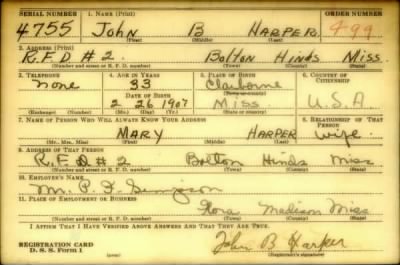 SERIAL NUMBER 1. NAME (Print) ORDER NUMBER
4755 John B HARPER 494
(First) (Middle) (Last)
2. ADDRESS (Print)
R.F.D # 2. Bolton Hinds Miss.
(Number and street or R. F. D. number) (Town) (County) (State)
3. TELEPHONE 4. AGE IN YEARS 5. PLACE OF BIRTH 6. COUNTRY OF CITIZENSHIP
none 33 Claiborne
DATE OF BIRTH (Town or county)
2 26 1907 Miss U.S.A
(Exchange) (Number) (Mo.) (Day) (Yr.) (State or country)
7. NAME OF PERSON WHO WILL ALWAYS KNOW YOUR ADDRESS 8. RELATIONSHIP OF THAT PERSON
MARY HARPER wife.
(Mr., Mrs., Miss) (First) (Middle) (Last)
9. ADDRESS OF THAT PERSON
R.F.D # 2 Bolton Hinds Miss
(Number and street or R. F. D. number) (Town) (County) (State)
10. EMPLOYER'S NAME
Mr. P. Simpson
11. PLACE OF EMPLOYMENT OR BUSINESS
Flora Madison Miss
(Number and street or R. F. D. number) (Town) (County) (State)
I AFFIRM THAT I HAVE VERIFIED ABOVE ANSWERS AND THAT THEY ARE TRUE.
REGISTRATION CARD John B Harper
D. S. S. Form 1 (over) (Registrant's signature)